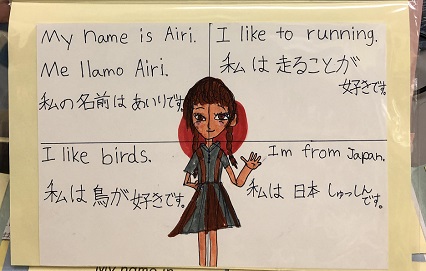 My name is Airi.
Me llamo Airi.
私の名前はあいりです。
I like to running.
私は走ることが
好きです。
I like birds.
私は鳥が好きです。
Im from Japan.
私は日本しゅっしん
です。
My name is